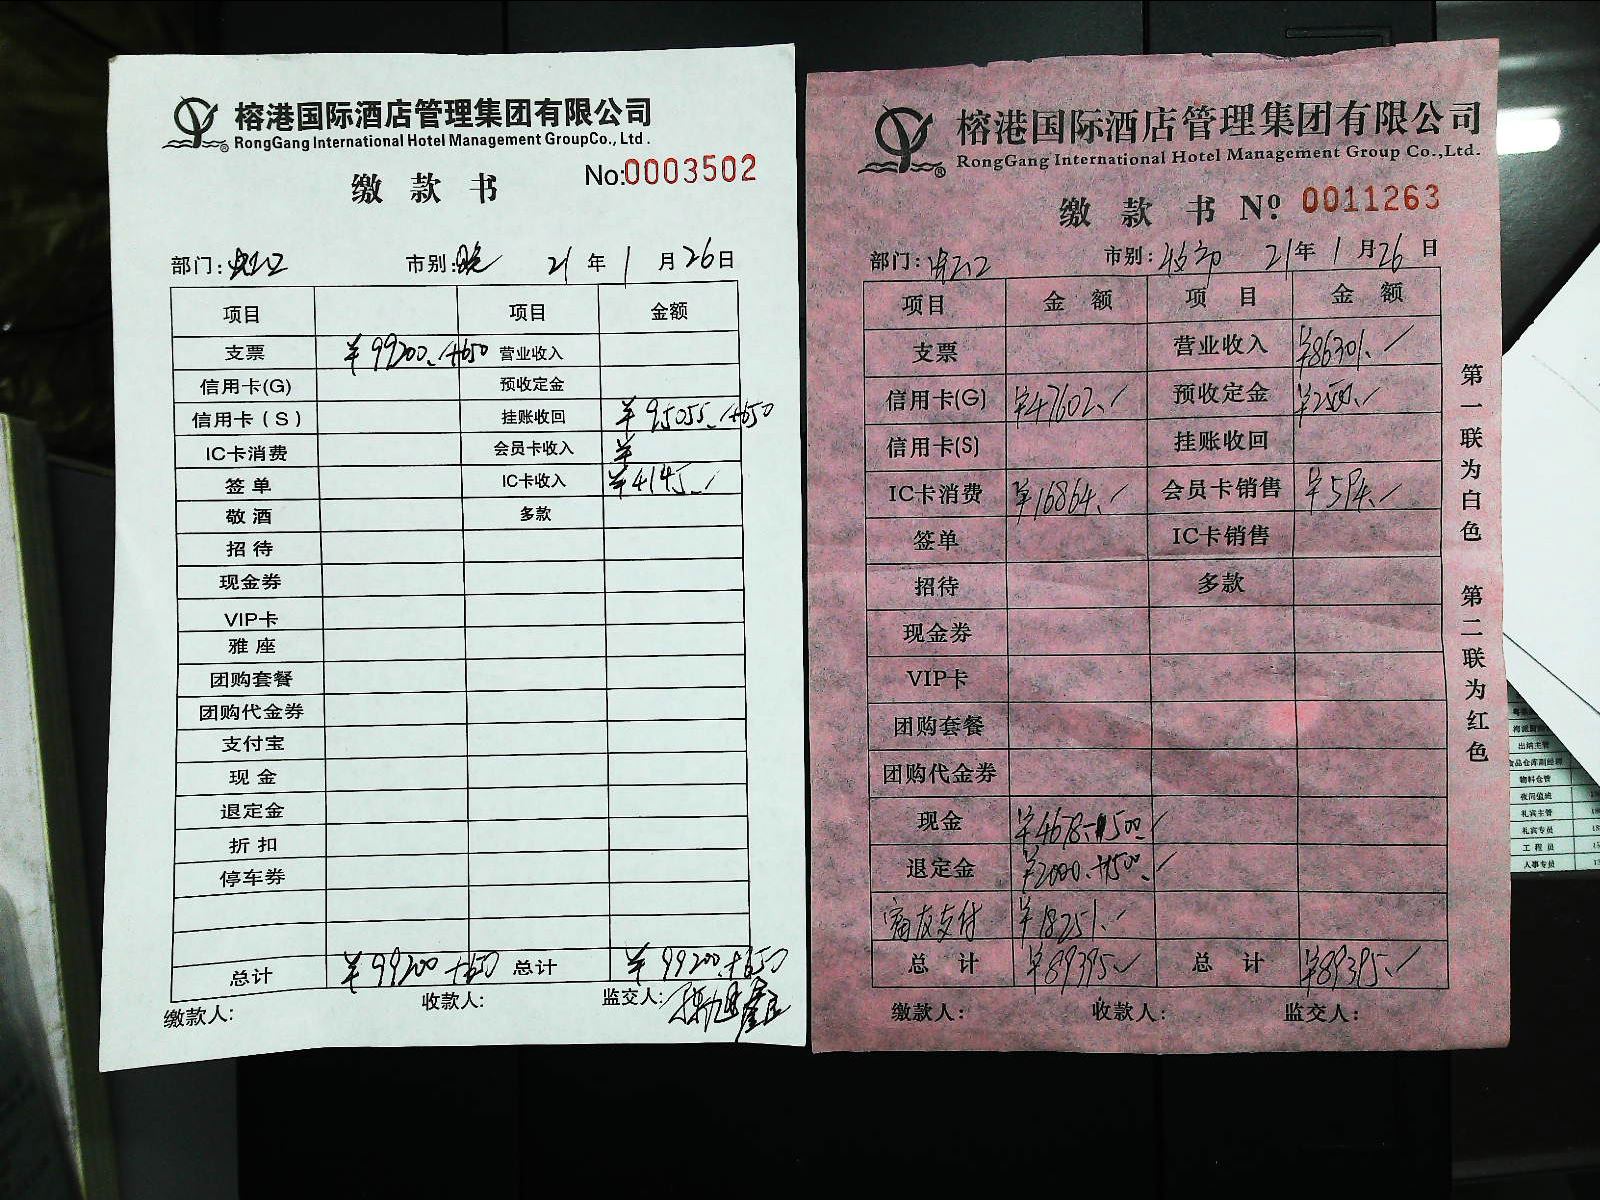 榕港国际酒店管理集团有限公司
RongGang International Hotel Management GroupCo., Ltd.
缴 款 书 No:0003502
部门: 市别:晚 21 年 1 月 26 日
项目 项目 金额
支票 ¥99200.+650 营业收入
信用卡(G) 预收定金
信用卡(S) 挂账收回 ¥95055.+650
IC卡消费 会员卡收入 ¥
签 单 IC卡收入 ¥4145.
敬 酒 多款
招 待
现金券
VIP卡
雅 座
团购套餐
团购代金券
支付宝
现 金
退定金
折 扣
停车券
总计 ¥99200+650 总计 ¥99200.+650
缴款人: 收款人: 监交人:
榕港国际酒店管理集团有限公司
RongGang International Hotel Management Group Co.,Ltd.
缴 款 书 Nº: 0011263
部门: 市别: 21年 1 月 26 日
项目 金 额 项 目 金 额
支票 营业收入 ¥86301.
信用卡(G) ¥47602. 预收定金 ¥2500.
信用卡(S) 挂账收回
IC卡消费 ¥16864. 会员卡销售 ¥594.
签单 IC卡销售
招待 多款
现金券
VIP卡
团购套餐
团购代金券
现金 ¥4678-500.
退定金 ¥2000.+500.
支付 ¥18251.
总 计 ¥89395. 总 计 ¥89395.
缴款人: 收款人: 监交人:
第一联为白色 第二联为红色
出纳主管
食品仓库副经理
物料仓管
夜间值班
礼宾主管
礼宾专员
工 程 员
人事专员